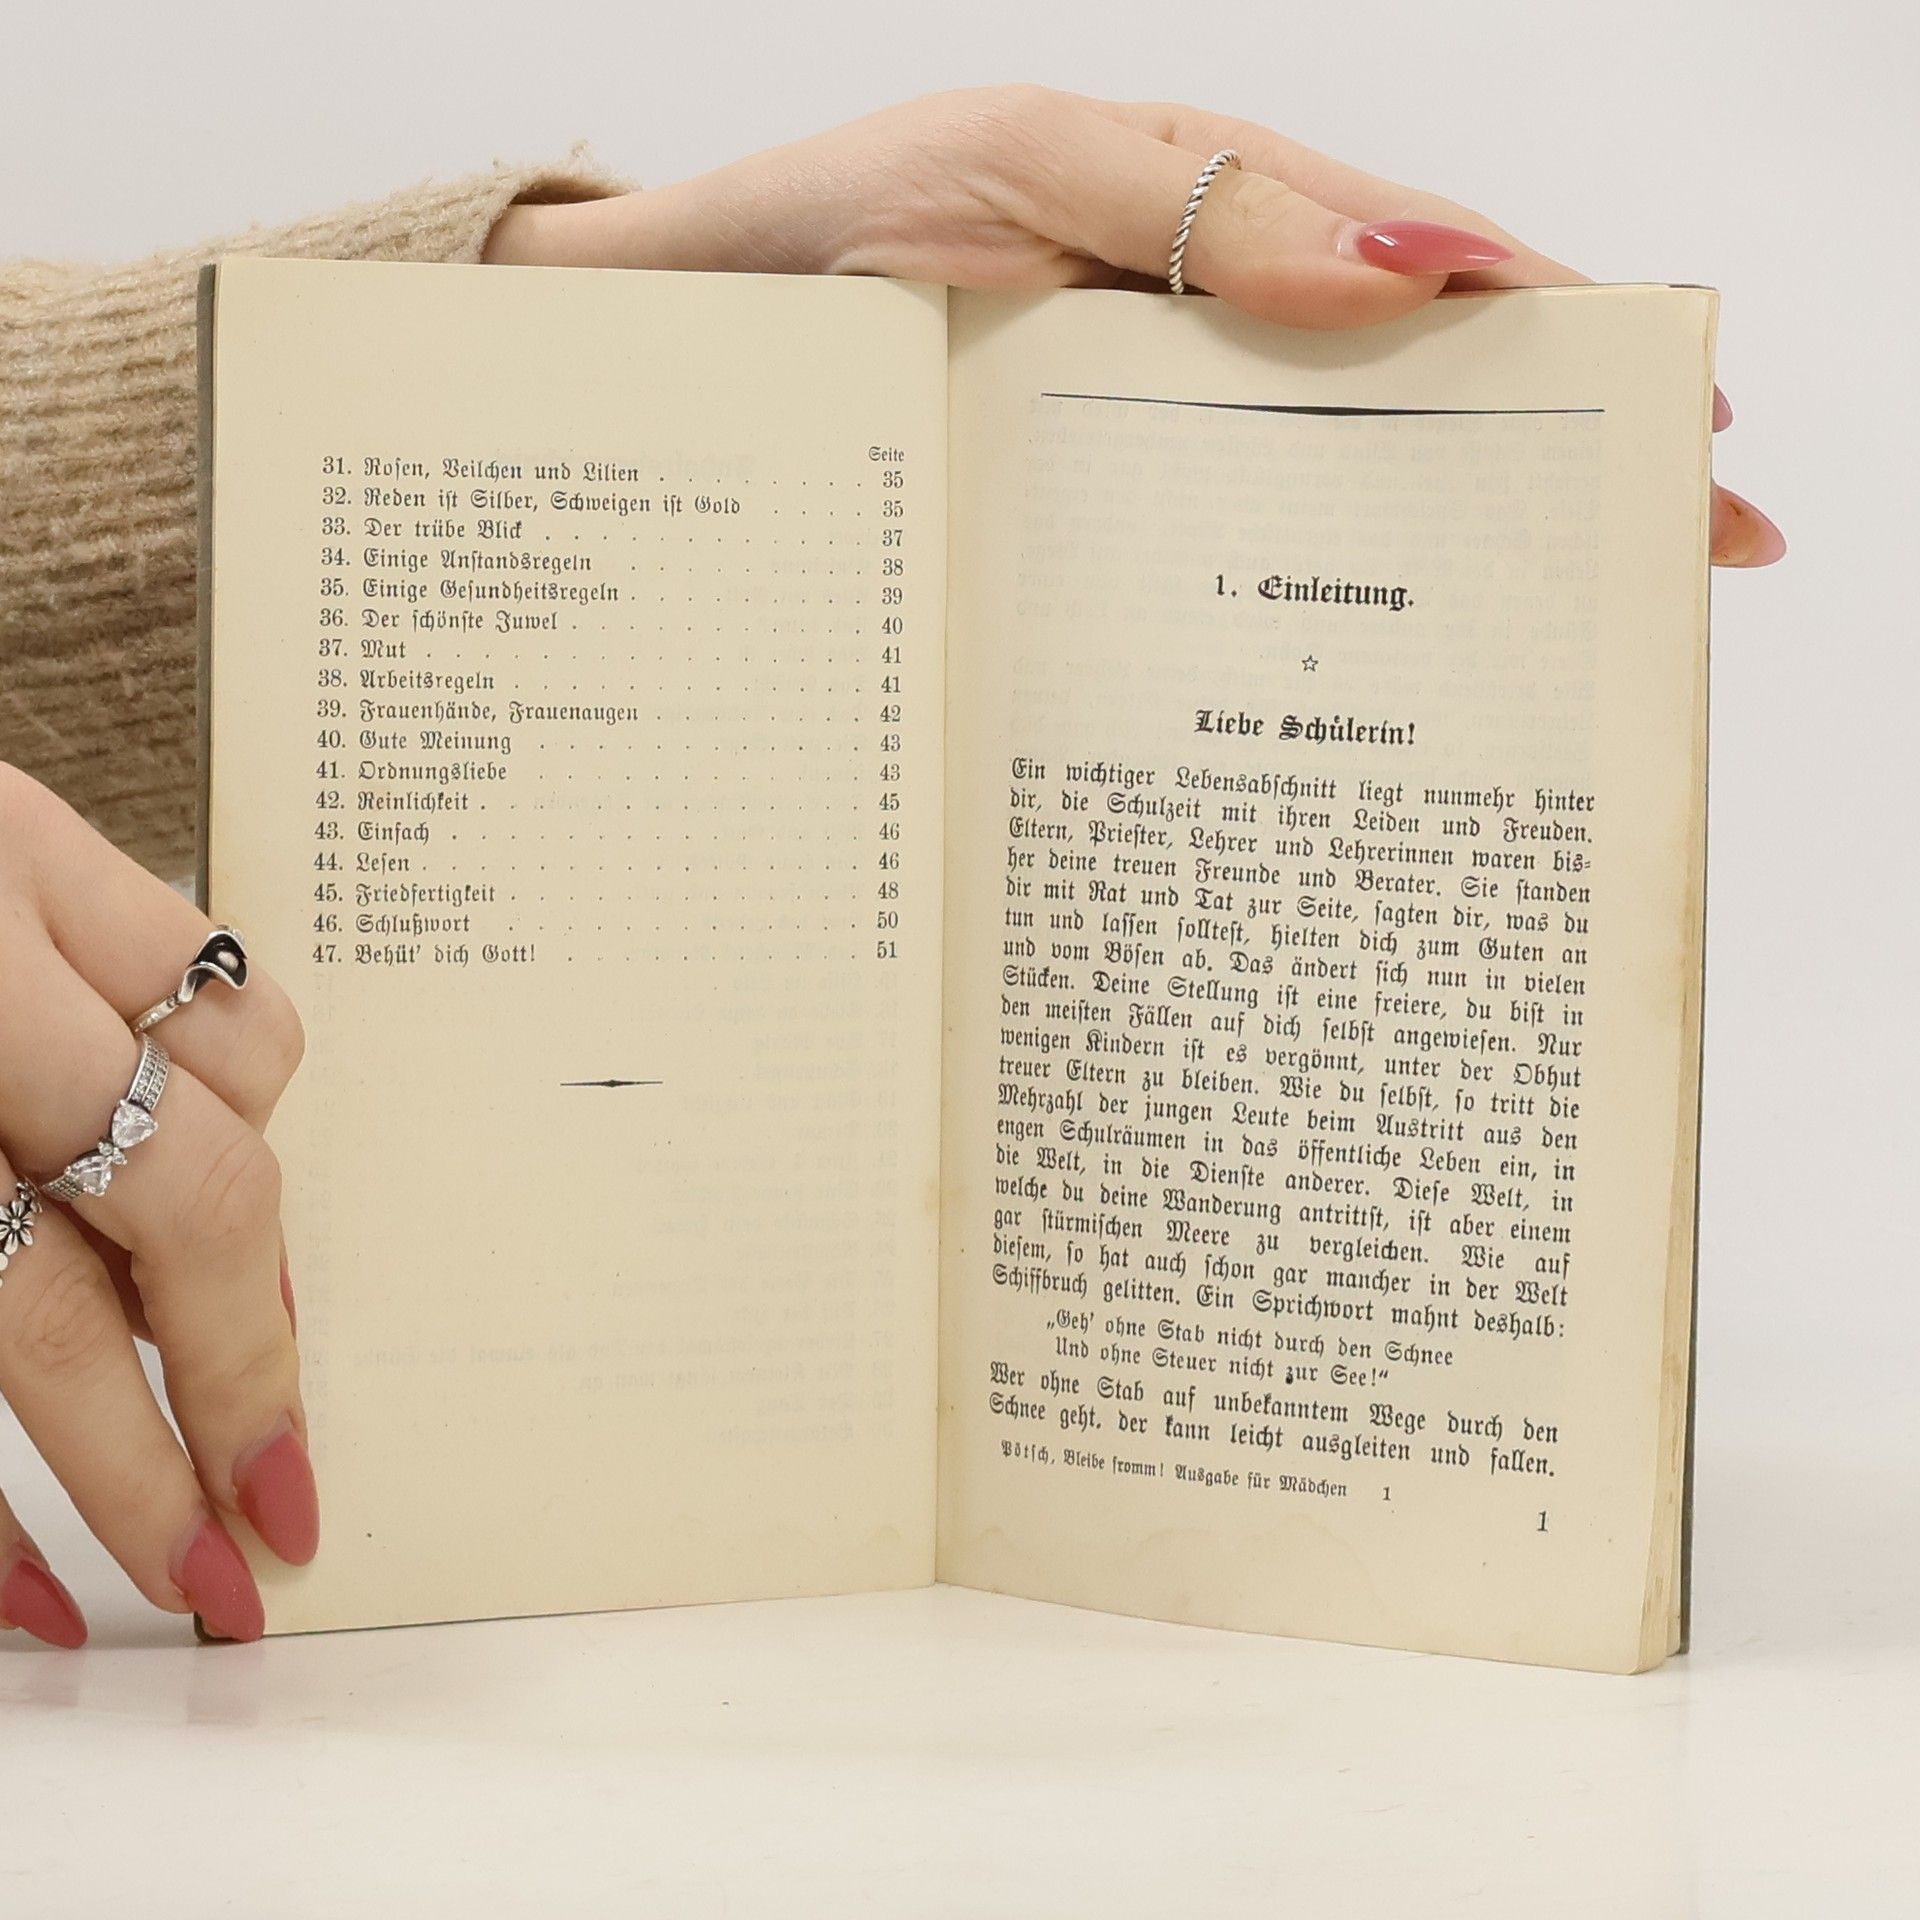 Seite
31. Rosen, Veilchen und Lilien . . . . . . . . 35
32. Reden ist Silber, Schweigen ist Gold . . . . 35
33. Der trübe Blick . . . . . . . . . . . . 37
34. Einige Anstandsregeln . . . . . . . . . 38
35. Einige Gesundheitsregeln . . . . . . . . . 39
36. Der schönste Juwel . . . . . . . . . . . 40
37. Mut . . . . . . . . . . . . . . . . 41
38. Arbeitsregeln . . . . . . . . . . . . . 41
39. Frauenhände, Frauenaugen . . . . . . . . 42
40. Gute Meinung . . . . . . . . . . . . 43
41. Ordnungsliebe . . . . . . . . . . . . 43
42. Reinlichkeit . . . . . . . . . . . . . . 45
43. Einfach . . . . . . . . . . . . . . . 46
44. Lesen . . . . . . . . . . . . . . . . 46
45. Friedfertigkeit . . . . . . . . . . . . . 48
46. Schlußwort . . . . . . . . . . . . . 50
47. Behüt' dich Gott! . . . . . . . . . . . 51
1. Einleitung.
☆
Liebe Schülerin!
Ein wichtiger Lebensabschnitt liegt nunmehr hinter
dir, die Schulzeit mit ihren Leiden und Freuden.
Eltern, Priester, Lehrer und Lehrerinnen waren bis-
her deine treuen Freunde und Berater. Sie standen
dir mit Rat und Tat zur Seite, sagten dir, was du
tun und lassen solltest, hielten dich zum Guten an
und vom Bösen ab. Das ändert sich nun in vielen
Stücken. Deine Stellung ist eine freiere, du bist in
den meisten Fällen auf dich selbst angewiesen. Nur
wenigen Kindern ist es vergönnt, unter der Obhut
treuer Eltern zu bleiben. Wie du selbst, so tritt die
Mehrzahl der jungen Leute beim Austritt aus den
engen Schulräumen in das öffentliche Leben ein, in
die Welt, in die Dienste anderer. Diese Welt, in
welche du deine Wanderung antrittst, ist aber einem
gar stürmischen Meere zu vergleichen. Wie auf
diesem, so hat auch schon gar mancher in der Welt
Schiffbruch gelitten. Ein Sprichwort mahnt deshalb:
„Geh' ohne Stab nicht durch den Schnee
Und ohne Steuer nicht zur See!“
Wer ohne Stab auf unbekanntem Wege durch den
Schnee geht, der kann leicht ausgleiten und fallen.
Pötsch, Bleibe fromm! Ausgabe für Mädchen 1
1